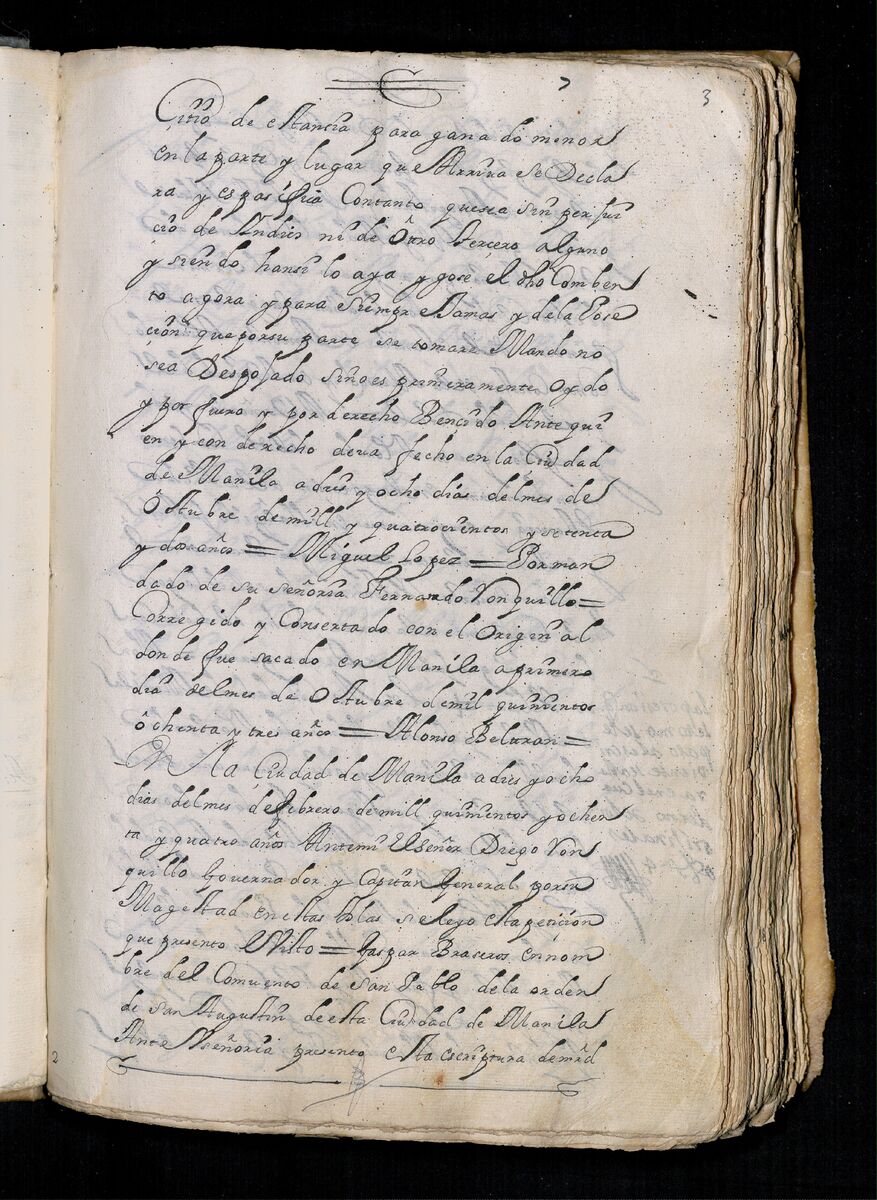 3
Citio de estancia para ganado menor
en la parte y lugar que Arriva se Decla
ra y espasifica Contanto quesea sin perjui
cio de Indios ni de Otro tercero alguno
y siendo hansi lo aya y gose el dho Comben
to agora y para siempre Jamas y dela Pose
cion que porsu parte se tomare Mando no
sea Despojado sino es primeramente oydo
y por fuero y por derecho Bencido Ante qui
en y con derecho deva fecho en la Ciudad
de Manila a dies y ocho dias del mes de
Octubre de mill y quatrocientos y setenta
y dos años = Miguel Lopez = Porman
dado de su señoria Fernando Ronquillo =
Corregido y Consertado con el Original
donde fue sacado en Manila a primero
dia del mes de Octubre de mil quinientos
ochenta y tres años = Alonso Beltran =
En la Ciudad de Manila a dies y ocho
dias del mes de febrero de mill quinientos y ochen
ta y quatro años Antemi El señor Diego Ron
quillo Governador y Capitan General por su
Magestad en estas Yslas se leyo esta peticion
que presento el Visto = Gaspar Braseros en nom
bre del Comvento de San Pablo de la orden
de san Augustin de esta Ciudad de Manila
Ante Vseñoria presento esta escriptura de mrd
2